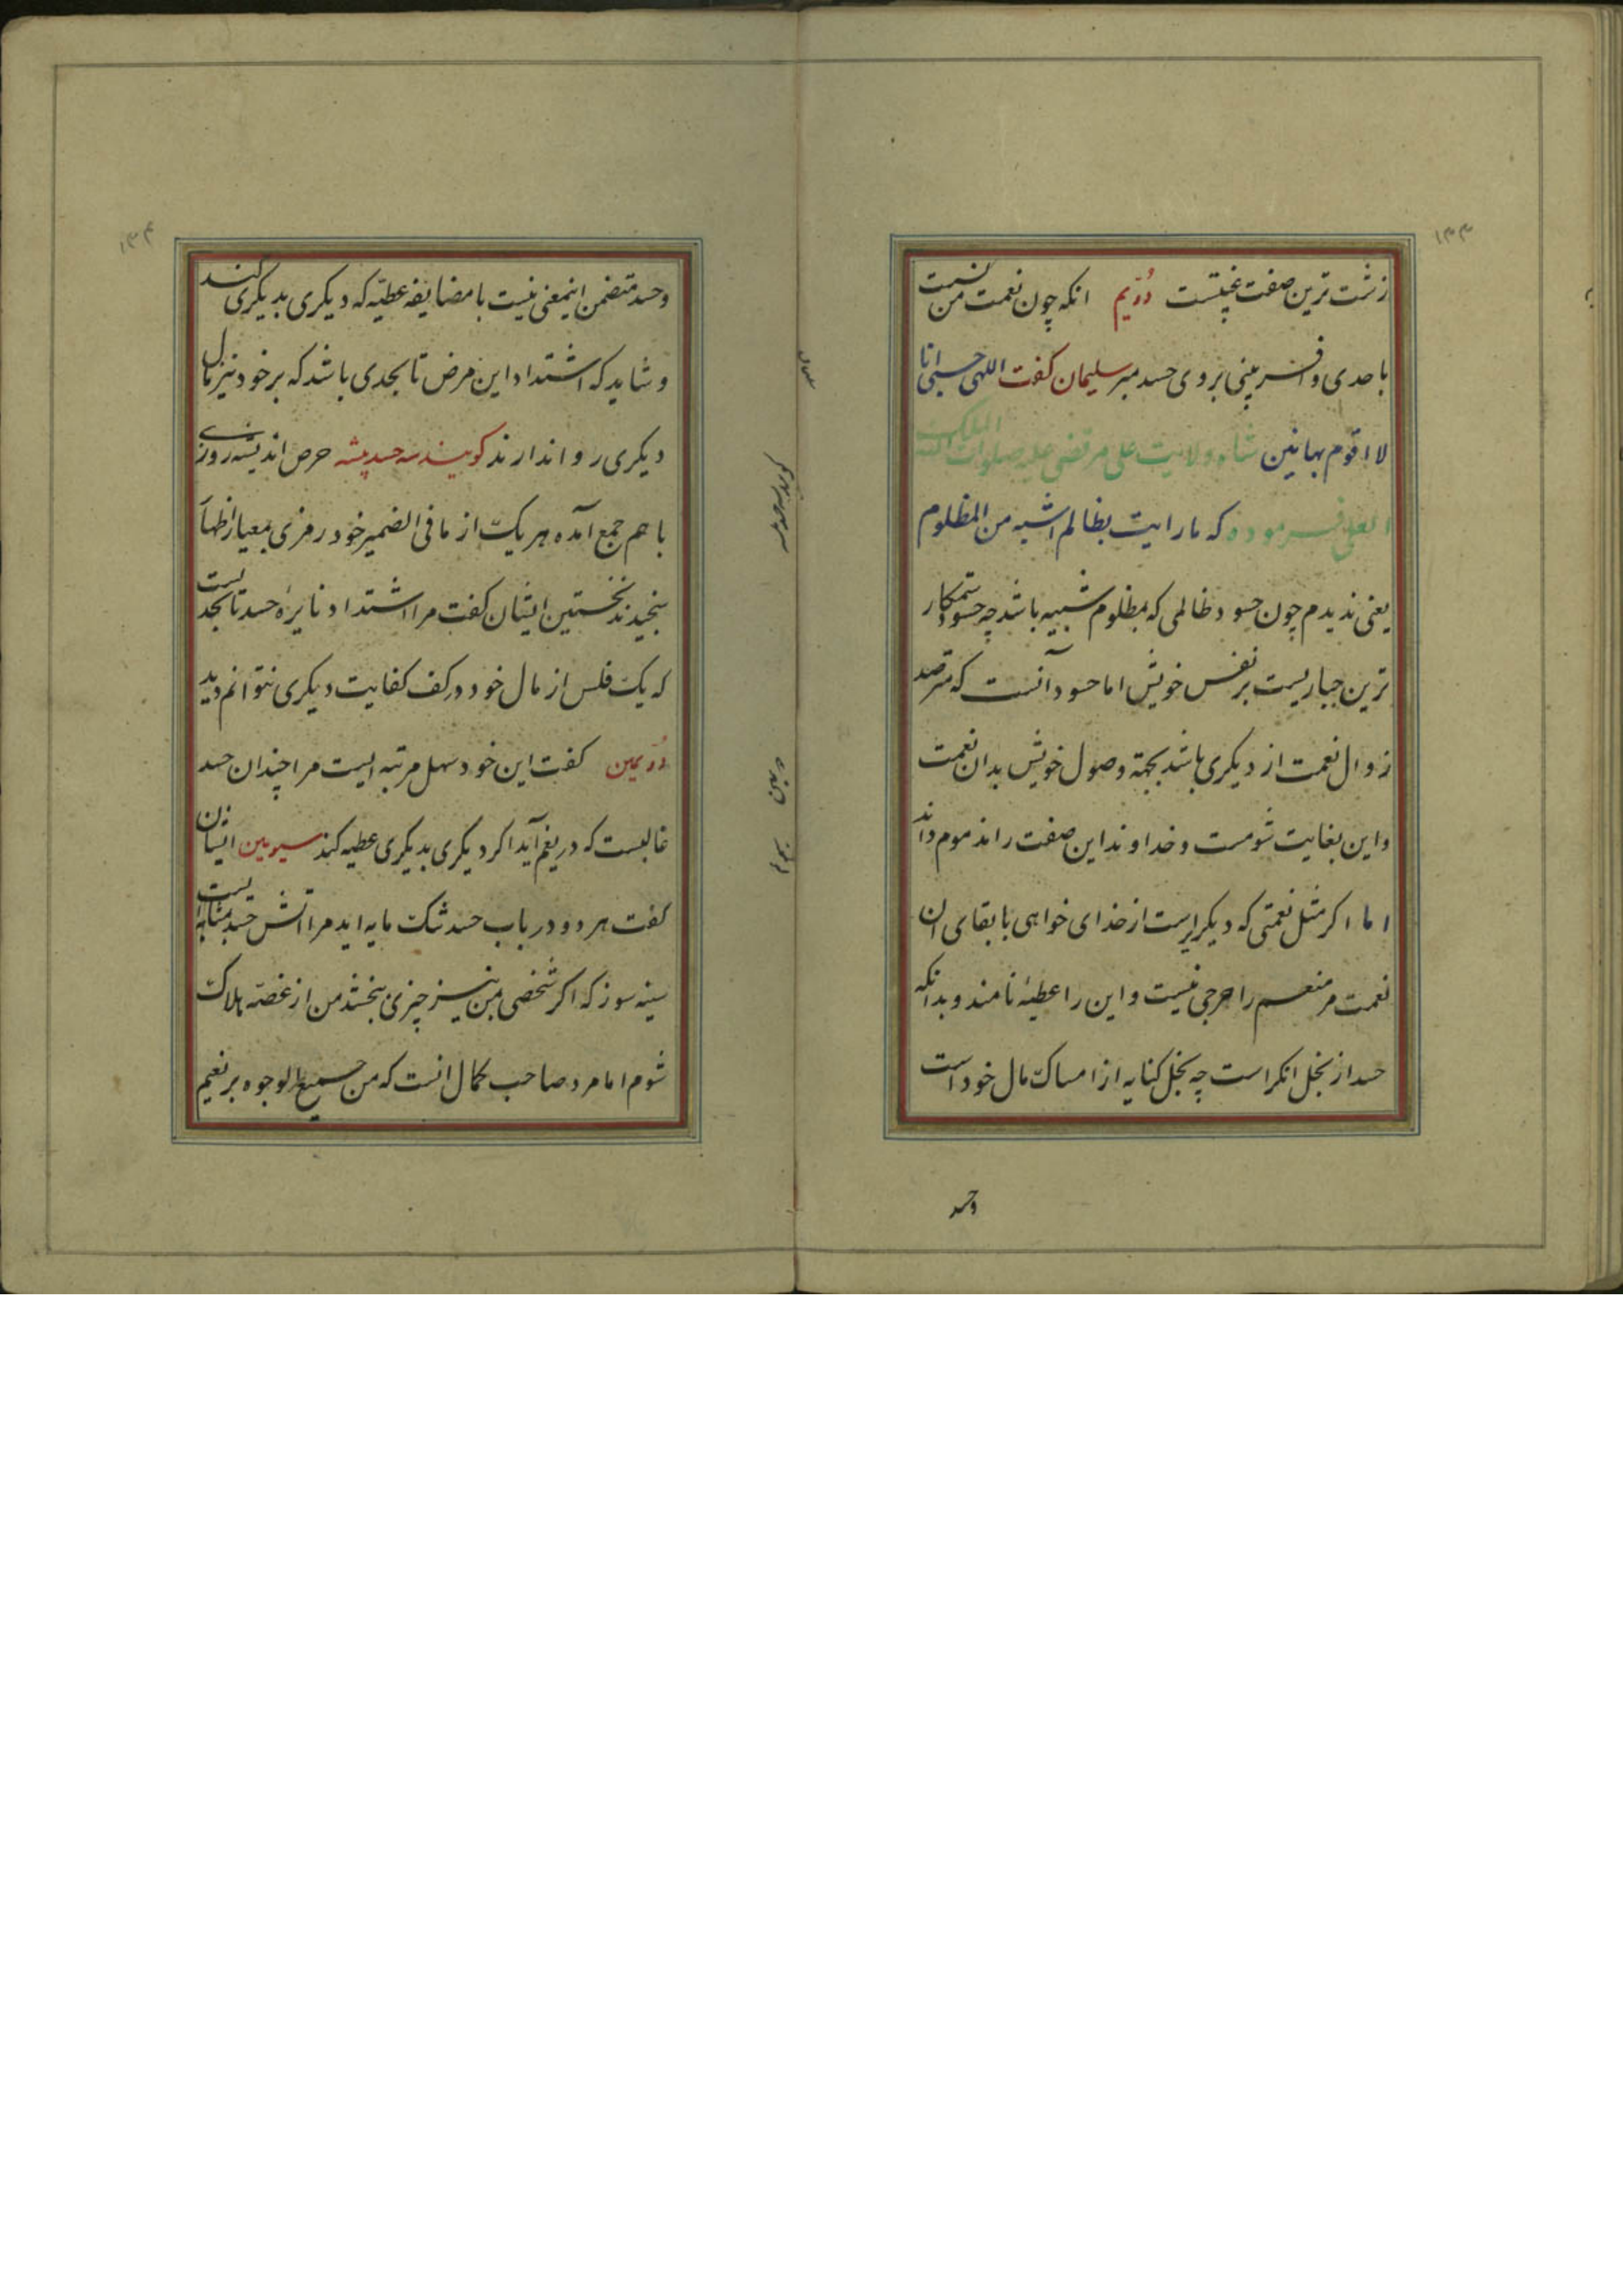 ۱۳۳
زشت ترین صفت غیبتست دویم انکه چون نعمت من نسبت
باحدی وافر بینی بروی حسد مبر سلیمان کفت اللهی حسبی انا
لا اقوم بهاتین شاه ولایت علی مرتضی علیه صلوات الله الملک
العلی فرموده که ما رایت بظالم اشبه من المظلوم
یعنی ندیدم چون حسود ظالمی که بمظلوم شبیه باشد چه حسود ستمکار
ترین جباریست بر نفس خویش اما حسود آنست که مترصد
زوال نعمت از دیکری باشد بجهة وصول خویش بدان نعمت
واین بغایت شومست و خداوند این صفت را مذموم داند
اما اکر مثل نعمتی که دیکریراست از خدای خواهی با بقای ان
نعمت مر منعم را حرجی نیست و این را عطیۀ نامند و بدانکه
حسد از بخل انکر است چه بخل کنایه از امساک مال خود است
وحسد
۱۳۴
وحسد متضمن اینمعنی نیست با مضایقه عطیّه که دیکری بدیکری کند
و شاید که اشتداد این مرض تا بحدی باشد که بر خود نیز مال
دیکری روا ندارند کویند سه حسد پیشه حرص اندیشه روزی
با هم جمع آمده هر یک از ما فی الضمیر خود رمزی بمعیار اظهار
بنجیدند نخستین ایشان کفت مرا اشتداد نایرۀ حسد تا بحدیست
که یک فلس از مال خود در کف کفایت دیکری نتوانم دید
دویمین کفت این خود سهل مرتبه ایست مرا چندان حسد
غالبست که دریغم آید اکر دیکری بدیکری عطیه کند سیومین ایشان
کفت هر دو در باب حسد تنک مایه اید مرا اتش حسد بمثابه ایست
سینه سوز که اکر شخصی بمن نیز چیزی بخشد من از غصّه هلاک
شوم اما مرد صاحب کمال انست که من جمیع الوجوه بر نعیم